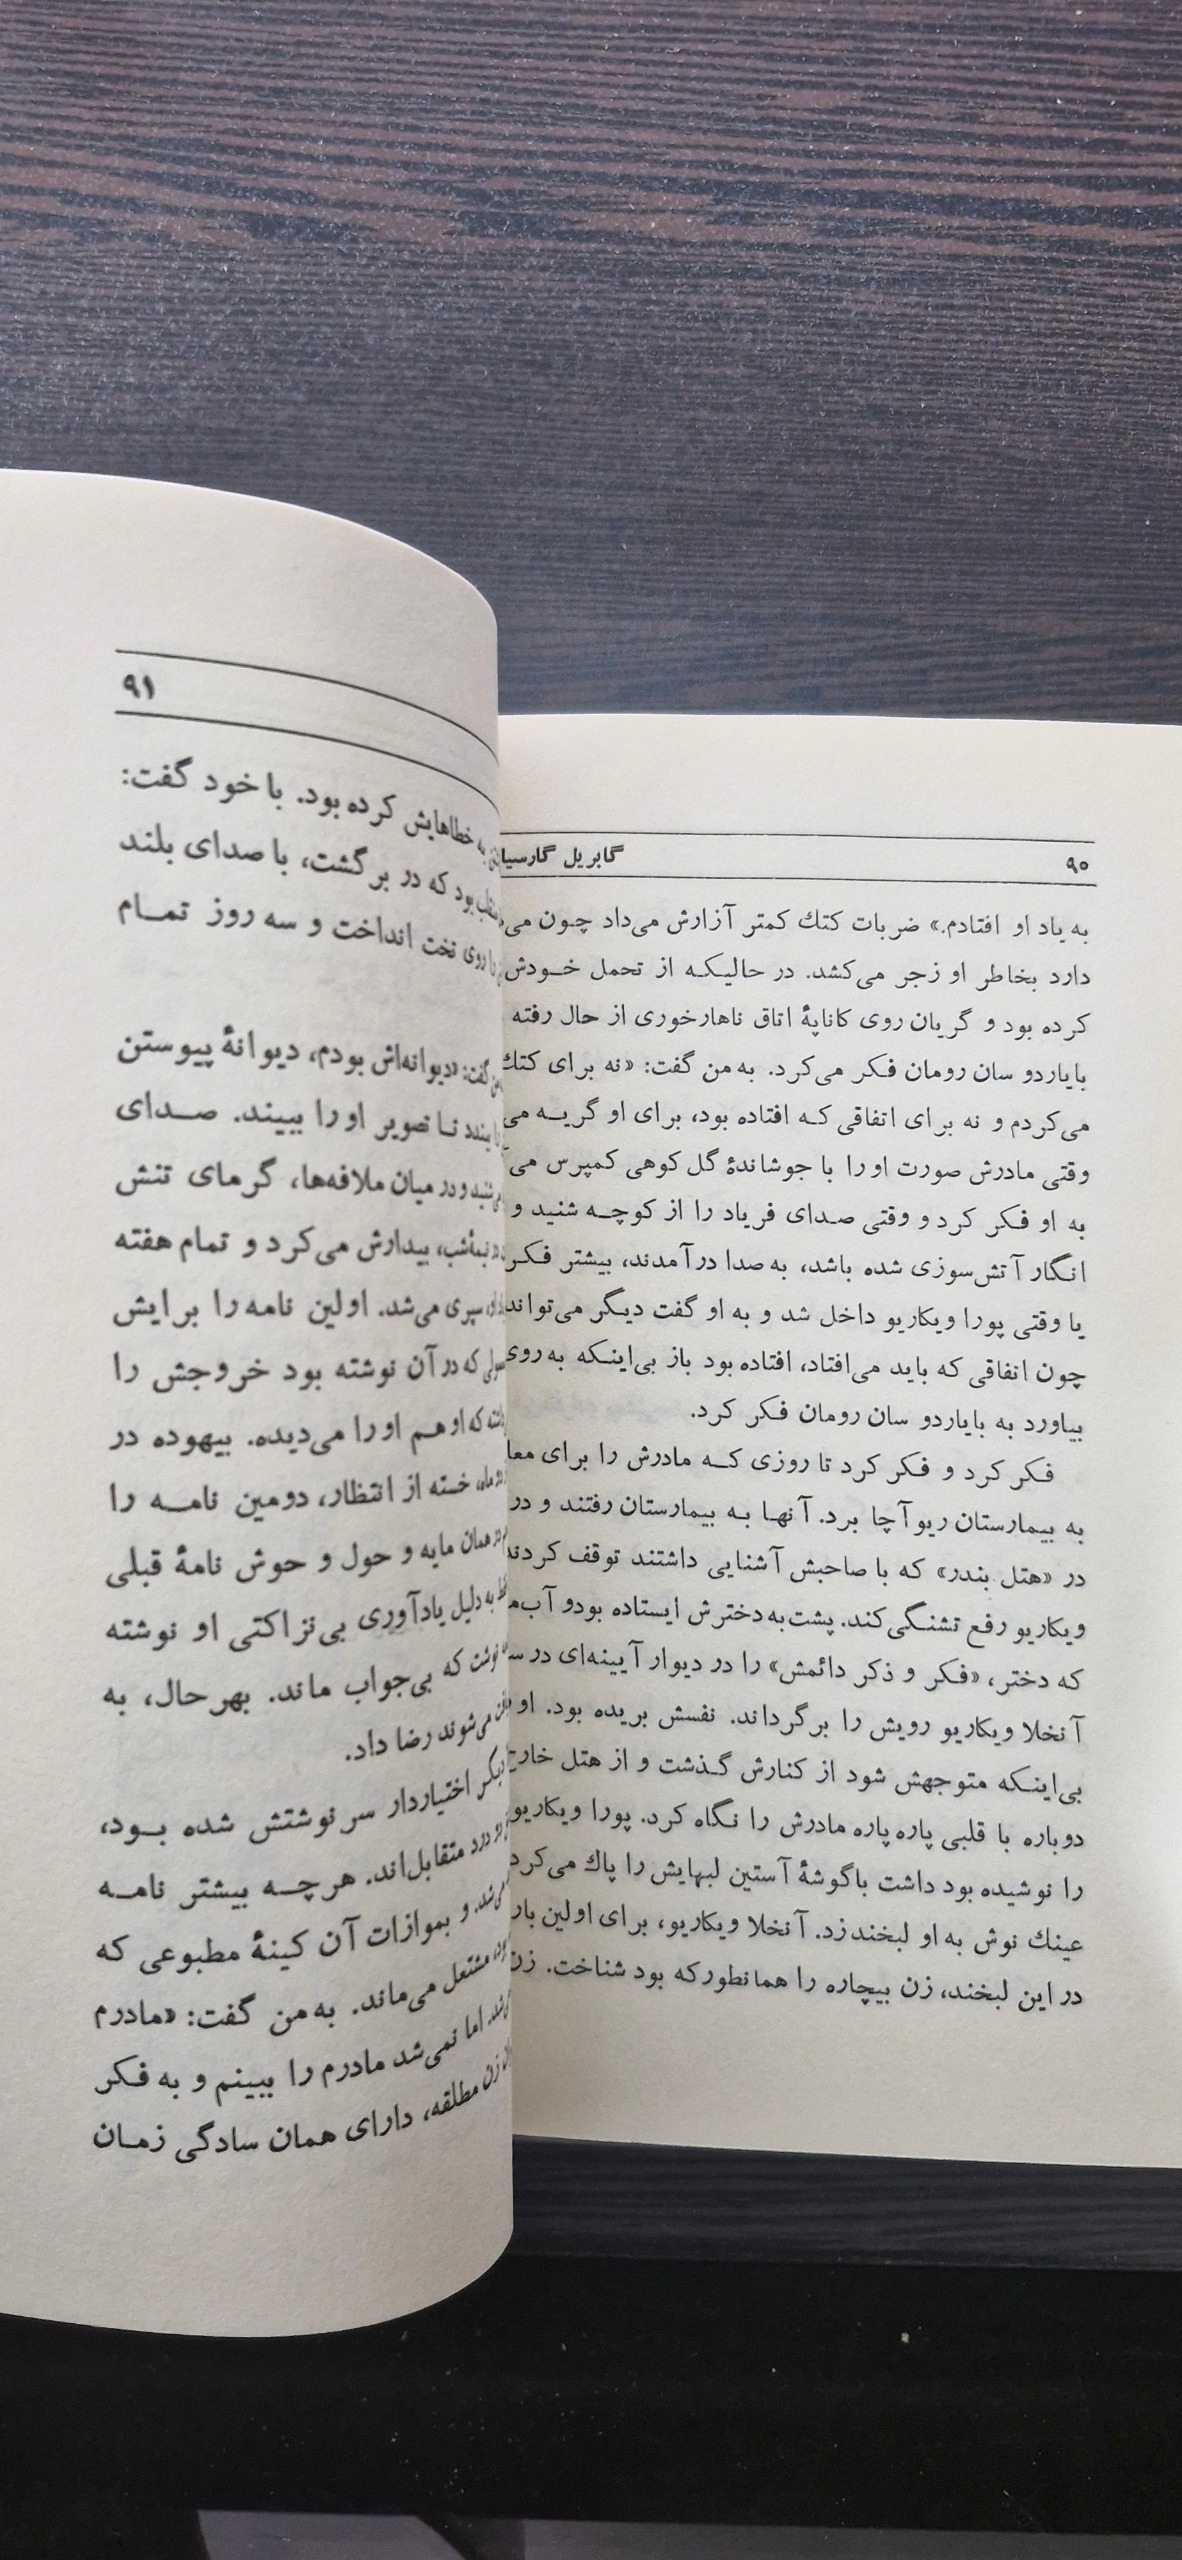 ۹۰
گابریل گارسیا
به یاد او افتادم.» ضربات کتك کمتر آزارش می‌داد چون
دارد بخاطر او زجر می‌کشد. در حالیکه از تحمل خودش
کرده بود و گریان روی کاناپهٔ اتاق ناهارخوری از حال رفته
بایاردو سان رومان فکر می‌کرد. به من گفت: «نه برای کتك
می‌کردم و نه برای اتفاقی که افتاده بود، برای او گریه
وقتی مادرش صورت او را با جوشاندهٔ گل کوهی کمپرس
به او فکر کرد و وقتی صدای فریاد را از کوچه شنید و
انگار آتش‌سوزی شده باشد، به صدا درآمدند، بیشتر فکر
یا وقتی پورا ویکاریو داخل شد و به او گفت دیگر می‌تواند
چون اتفاقی که باید می‌افتاد، افتاده بود باز بی‌اینکه به روی
بیاورد به بایاردو سان رومان فکر کرد.
فکر کرد و فکر کرد تا روزی که مادرش را برای
به بیمارستان ریوآچا برد. آنها به بیمارستان رفتند و در
در «هتل بندر» که با صاحبش آشنایی داشتند توقف کردند
ویکاریو رفع تشنگی کند. پشت به دخترش ایستاده بود و
که دختر، «فکر و ذکر دائمش» را در دیوار آیینه‌ای در
آنخلا ویکاریو رویش را برگرداند. نفسش بریده بود. او
بی‌اینکه متوجهش شود از کنارش گذشت و از هتل
دوباره با قلبی پاره پاره مادرش را نگاه کرد. پورا ویکاریو
را نوشیده بود داشت باگوشهٔ آستین لبهایش را پاك می‌کرد
عینك نوش به او لبخند زد. آنخلا ویکاریو، برای اولین بار
در این لبخند، زن بیچاره را همانطور که بود شناخت.
۹۱
به خطاهایش کرده بود. با خود گفت:
بود که در برگشت، با صدای بلند
را روی تخت انداخت و سه روز تمام
گفت: «دیوانه‌اش بودم، دیوانهٔ پیوستن
تا تصویر او را ببیند. صدای
و در میان ملافه‌ها، گرمای تنش
بیدارش می‌کرد و تمام هفته
سپری می‌شد. اولین نامه را برایش
که در آن نوشته بود خروجش را
که او هم او را می‌دیده. بیهوده در
خسته از انتظار، دومین نامه را
همان مایه و حول و حوش نامهٔ قبلی
به دلیل یادآوری بی‌نزاکتی او نوشته
نوشت که بی‌جواب ماند. بهر حال، به
می‌شوند رضا داد.
دیگر اختیاردار سرنوشتش شده بود،
درد متقابل‌اند. هرچه بیشتر نامه
و بموازات آن کینهٔ مطبوعی که
مشتعل می‌ماند. به من گفت: «مادرم
اما نمی‌شد مادرم را ببینم و به فکر
زن مطلقه، دارای همان سادگی زمان